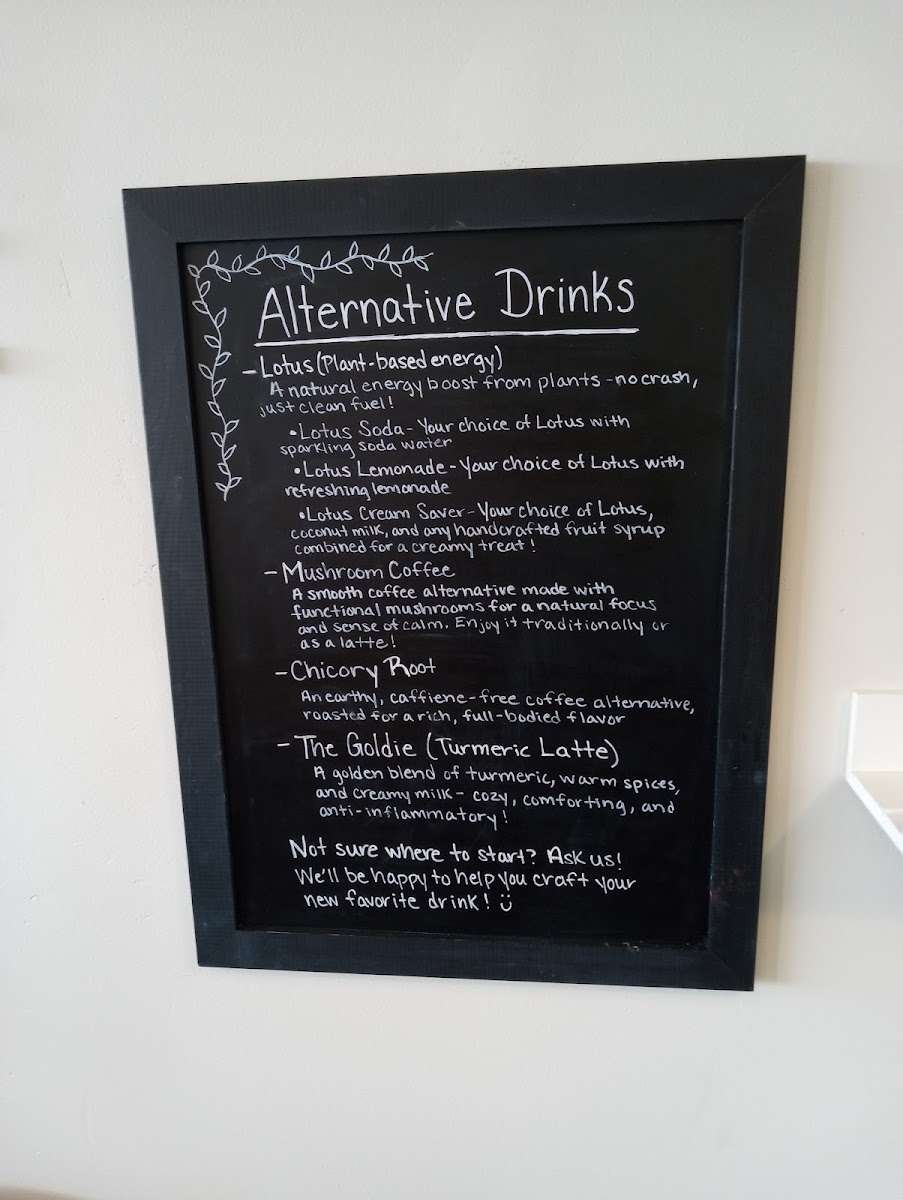 Alternative Drinks
- Lotus (Plant-based energy)
A natural energy boost from plants - no crash,
just clean fuel!
• Lotus Soda - Your choice of Lotus with
sparkling soda water
• Lotus Lemonade - Your choice of Lotus with
refreshing lemonade
• Lotus Cream Saver - Your choice of Lotus,
coconut milk, and any handcrafted fruit syrup
combined for a creamy treat!
- Mushroom Coffee
A smooth coffee alternative made with
functional mushrooms for a natural focus
and sense of calm. Enjoy it traditionally or
as a latte!
- Chicory Root
An earthy, caffiene-free coffee alternative,
roasted for a rich, full-bodied flavor
- The Goldie (Turmeric Latte)
A golden blend of turmeric, warm spices,
and creamy milk - cozy, comforting, and
anti-inflammatory!
Not sure where to start? Ask us!
We'll be happy to help you craft your
new favorite drink! ü